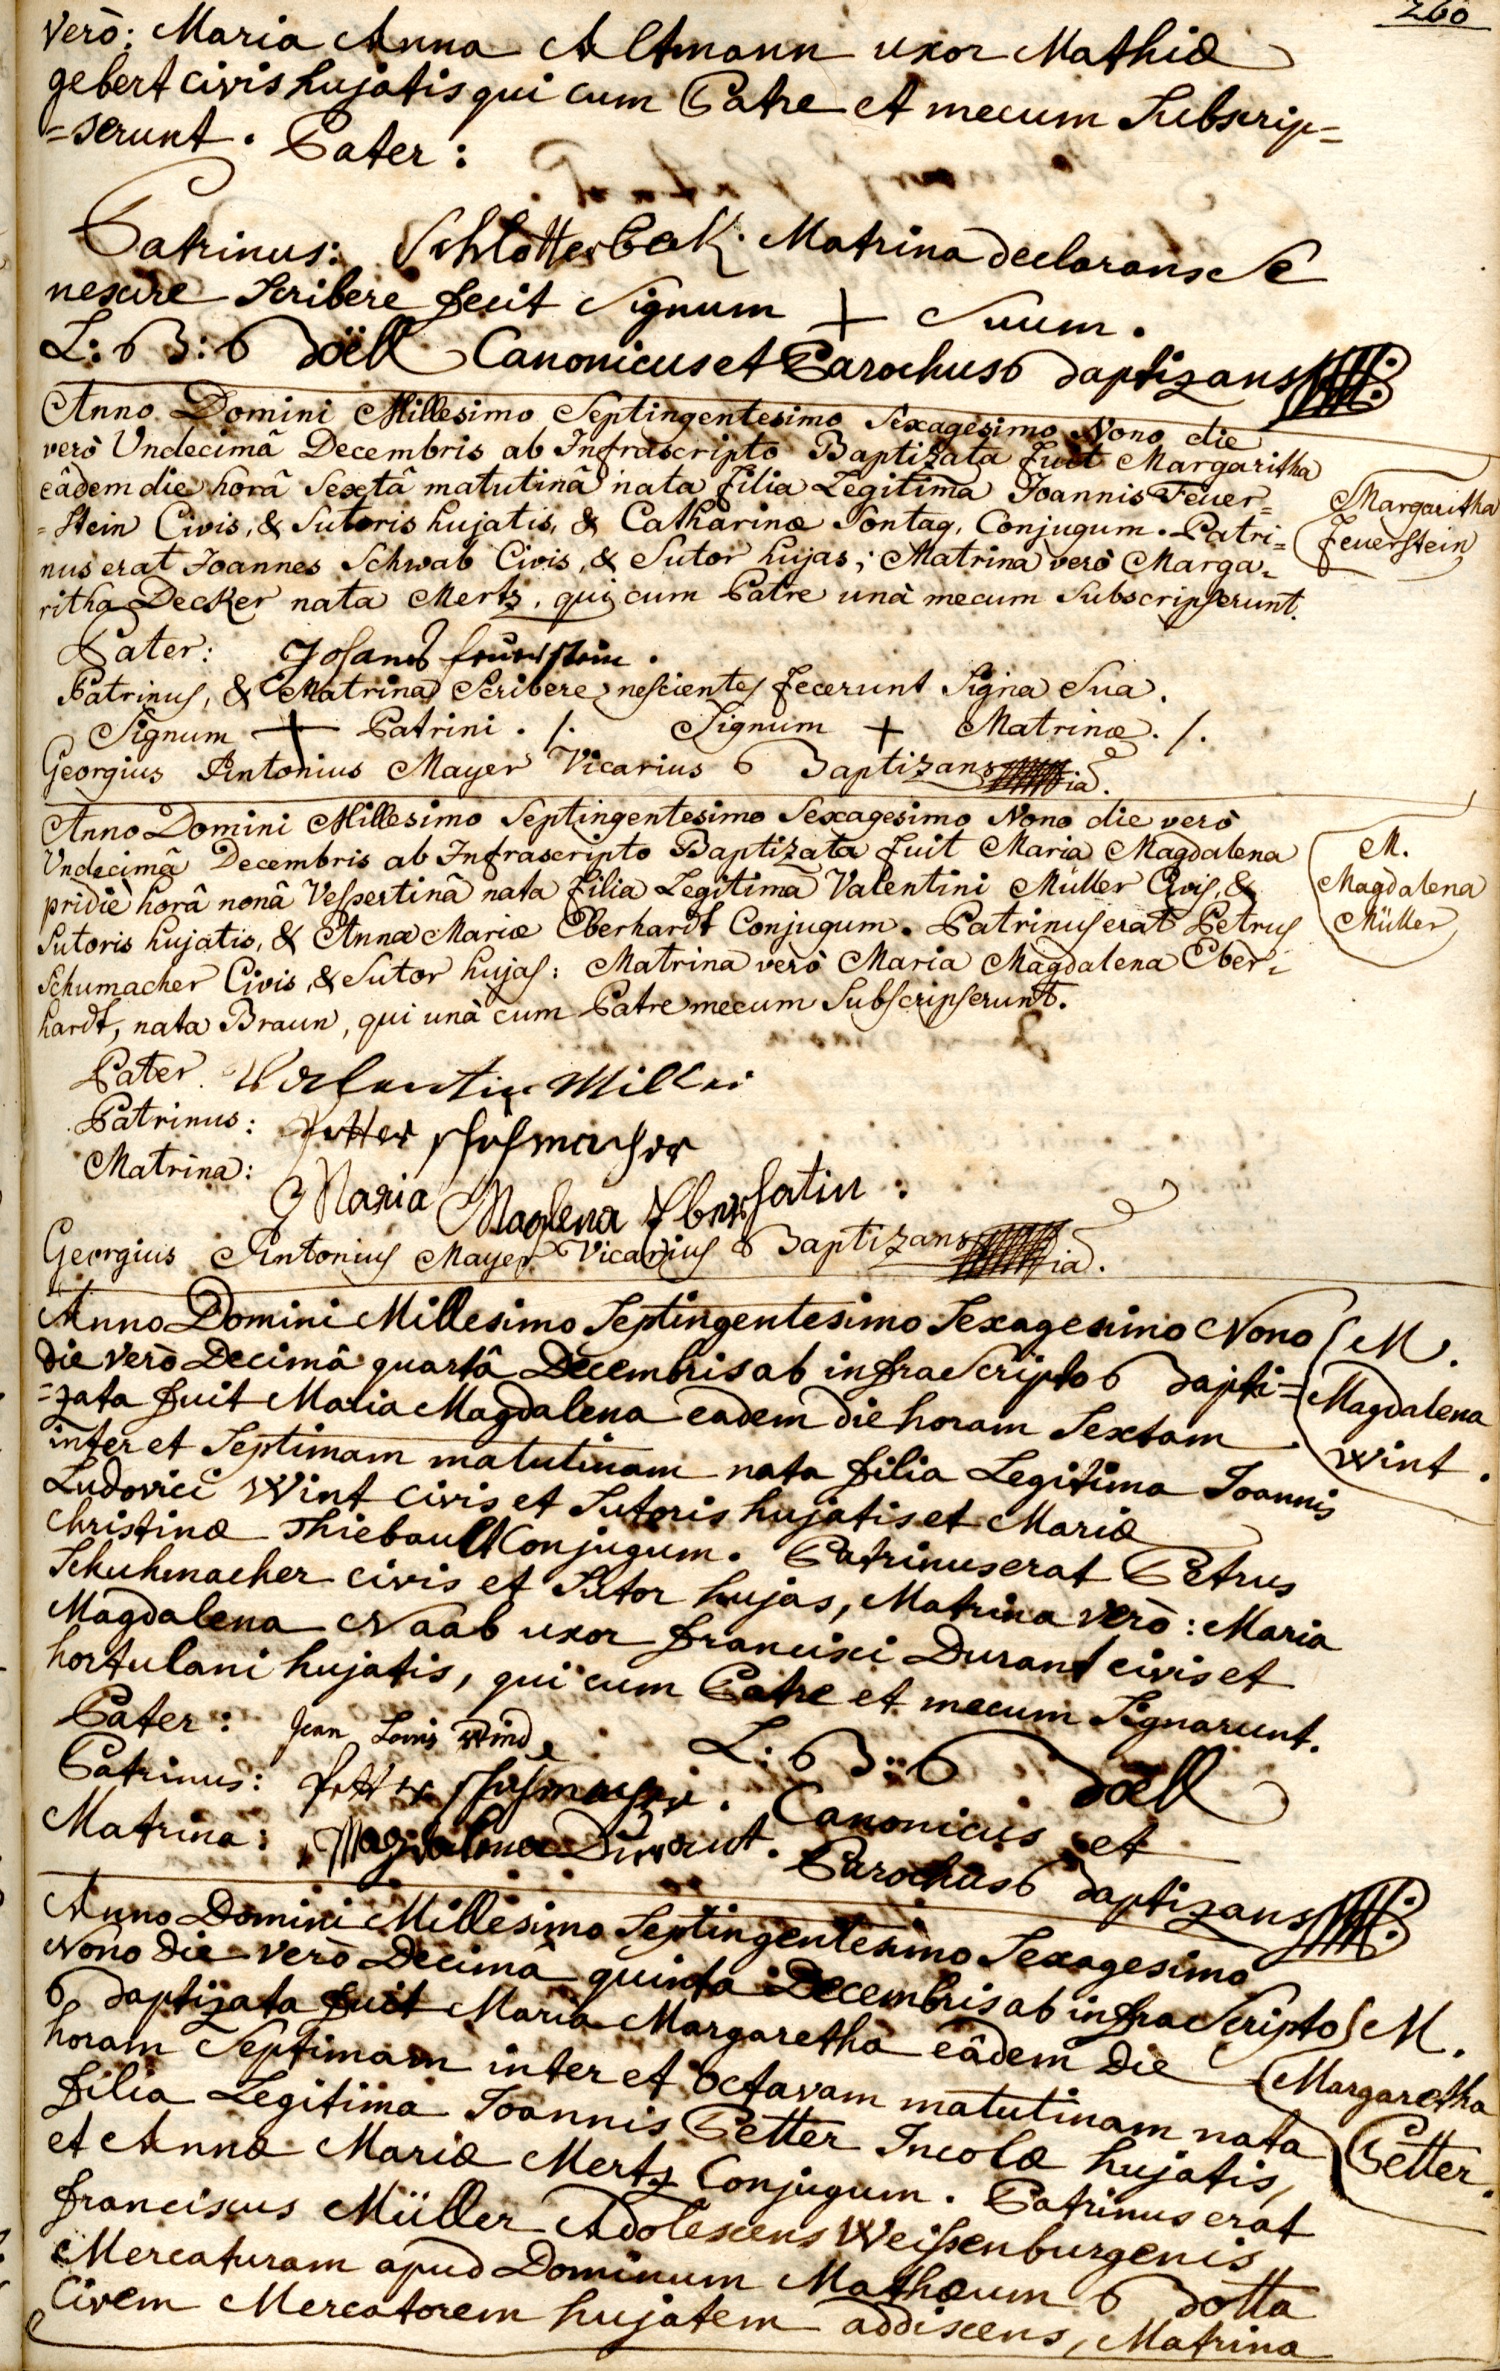 260
verò: Maria Anna Altmann uxor Mathiæ
gebert civis hujatis qui cum Patre et mecum Subscrip=
=serunt. Pater:
Patrinus: Schlotterbeck. Matrina declarans se
nescire Scribere fecit Signum + Suum.
L: B: Döll Canonicus et Parochus Baptizans
Anno Domini Millesimo Septingentesimo Sexagesimo Nono die
verò Undecimâ Decembris ab Infrascripto Baptizata Fuit Margaritha
eâdem die horâ Sextâ matutinâ nata Filia Legitima Joannis Feuer=
=stein Civis, & Sutoris hujatis, & Catharinæ Sontag, Conjugum. Patri=
nus erat Joannes Schwab Civis, & Sutor hujas; Matrina verò Marga=
ritha Decker nata Mertz, qui cum Patre unà mecum Subscripserunt.
Margaritha
Feuerstein
Pater: Johanes feuerstein.
Patrinus, & Matrina Scribere nescientes Fecerunt Signa Sua.
Signum + Patrini. /. Signum + Matrinæ. /.
Georgius Antonius Mayer Vicarius Baptizans
Anno Domini Millesimo Septingentesimo Sexagesimo Nono die verò
Undecimâ Decembris ab Infrascripto Baptizata Fuit Maria Magdalena
pridiè horâ nonâ Vespertinâ nata Filia Legitima Valentini Müller Civis, &
Sutoris hujatis, & Annæ Mariæ Eberhardt Conjugum. Patrinus erat Petrus
Schumacher Civis, & Sutor hujas: Matrina verò Maria Magdalena Eber=
hardt, nata Braun, qui unà cum Patre mecum Subscripserunt.
M.
Magdalena
Müller
Pater. Valentin Miller
Patrinus: Petter schuhmacher
Matrina: Maria Maglena Eberhatin:
Georgius Antonius Mayer Vicarius Baptizans
Anno Domini Millesimo Septingentesimo Sexagesimo Nono
die verò Decimâ quartâ Decembris ab infra Scripto Bapti=
=zata fuit Maria Magdalena eadem die horam Sextam
inter et Septimam matutinam nata filia Legitima Joannis
Ludovici Wint civis et Sutoris hujatis et Mariæ
Christinæ Thiebault Conjugum. Patrinus erat Petrus
Schuhmacher civis et Sutor hujas, Matrina verò: Maria
Magdalena Naab uxor francisci Durant civis et
hortulani hujatis, qui cum Patre et mecum Signarunt.
M.
Magdalena
Wint.
Pater: Jean Louis Wind
Patrinus: Petter schuhmacher.
Matrina: Magdalena Durant.
L: B: Döll
Canonicus et
Parochus Baptizans
Anno Domini Millesimo Septingentesimo Sexagesimo
Nono die verò Decimâ quinta Decembris ab infra Scripto
Baptizata fuit Maria Margaretha eâdem die
horam Septimam inter et octavam matutinam nata
filia Legitima Joannis Petter Incolæ hujatis,
et Annæ Mariæ Mertz Conjugum. Patrinus erat
franciscus Müller Adolescens Weissenburgenis
Mercaturam apud Dominum Mathæum Botta
Civem Mercatorem hujatem addiscens, Matrina
M.
Margaretha
Petter.